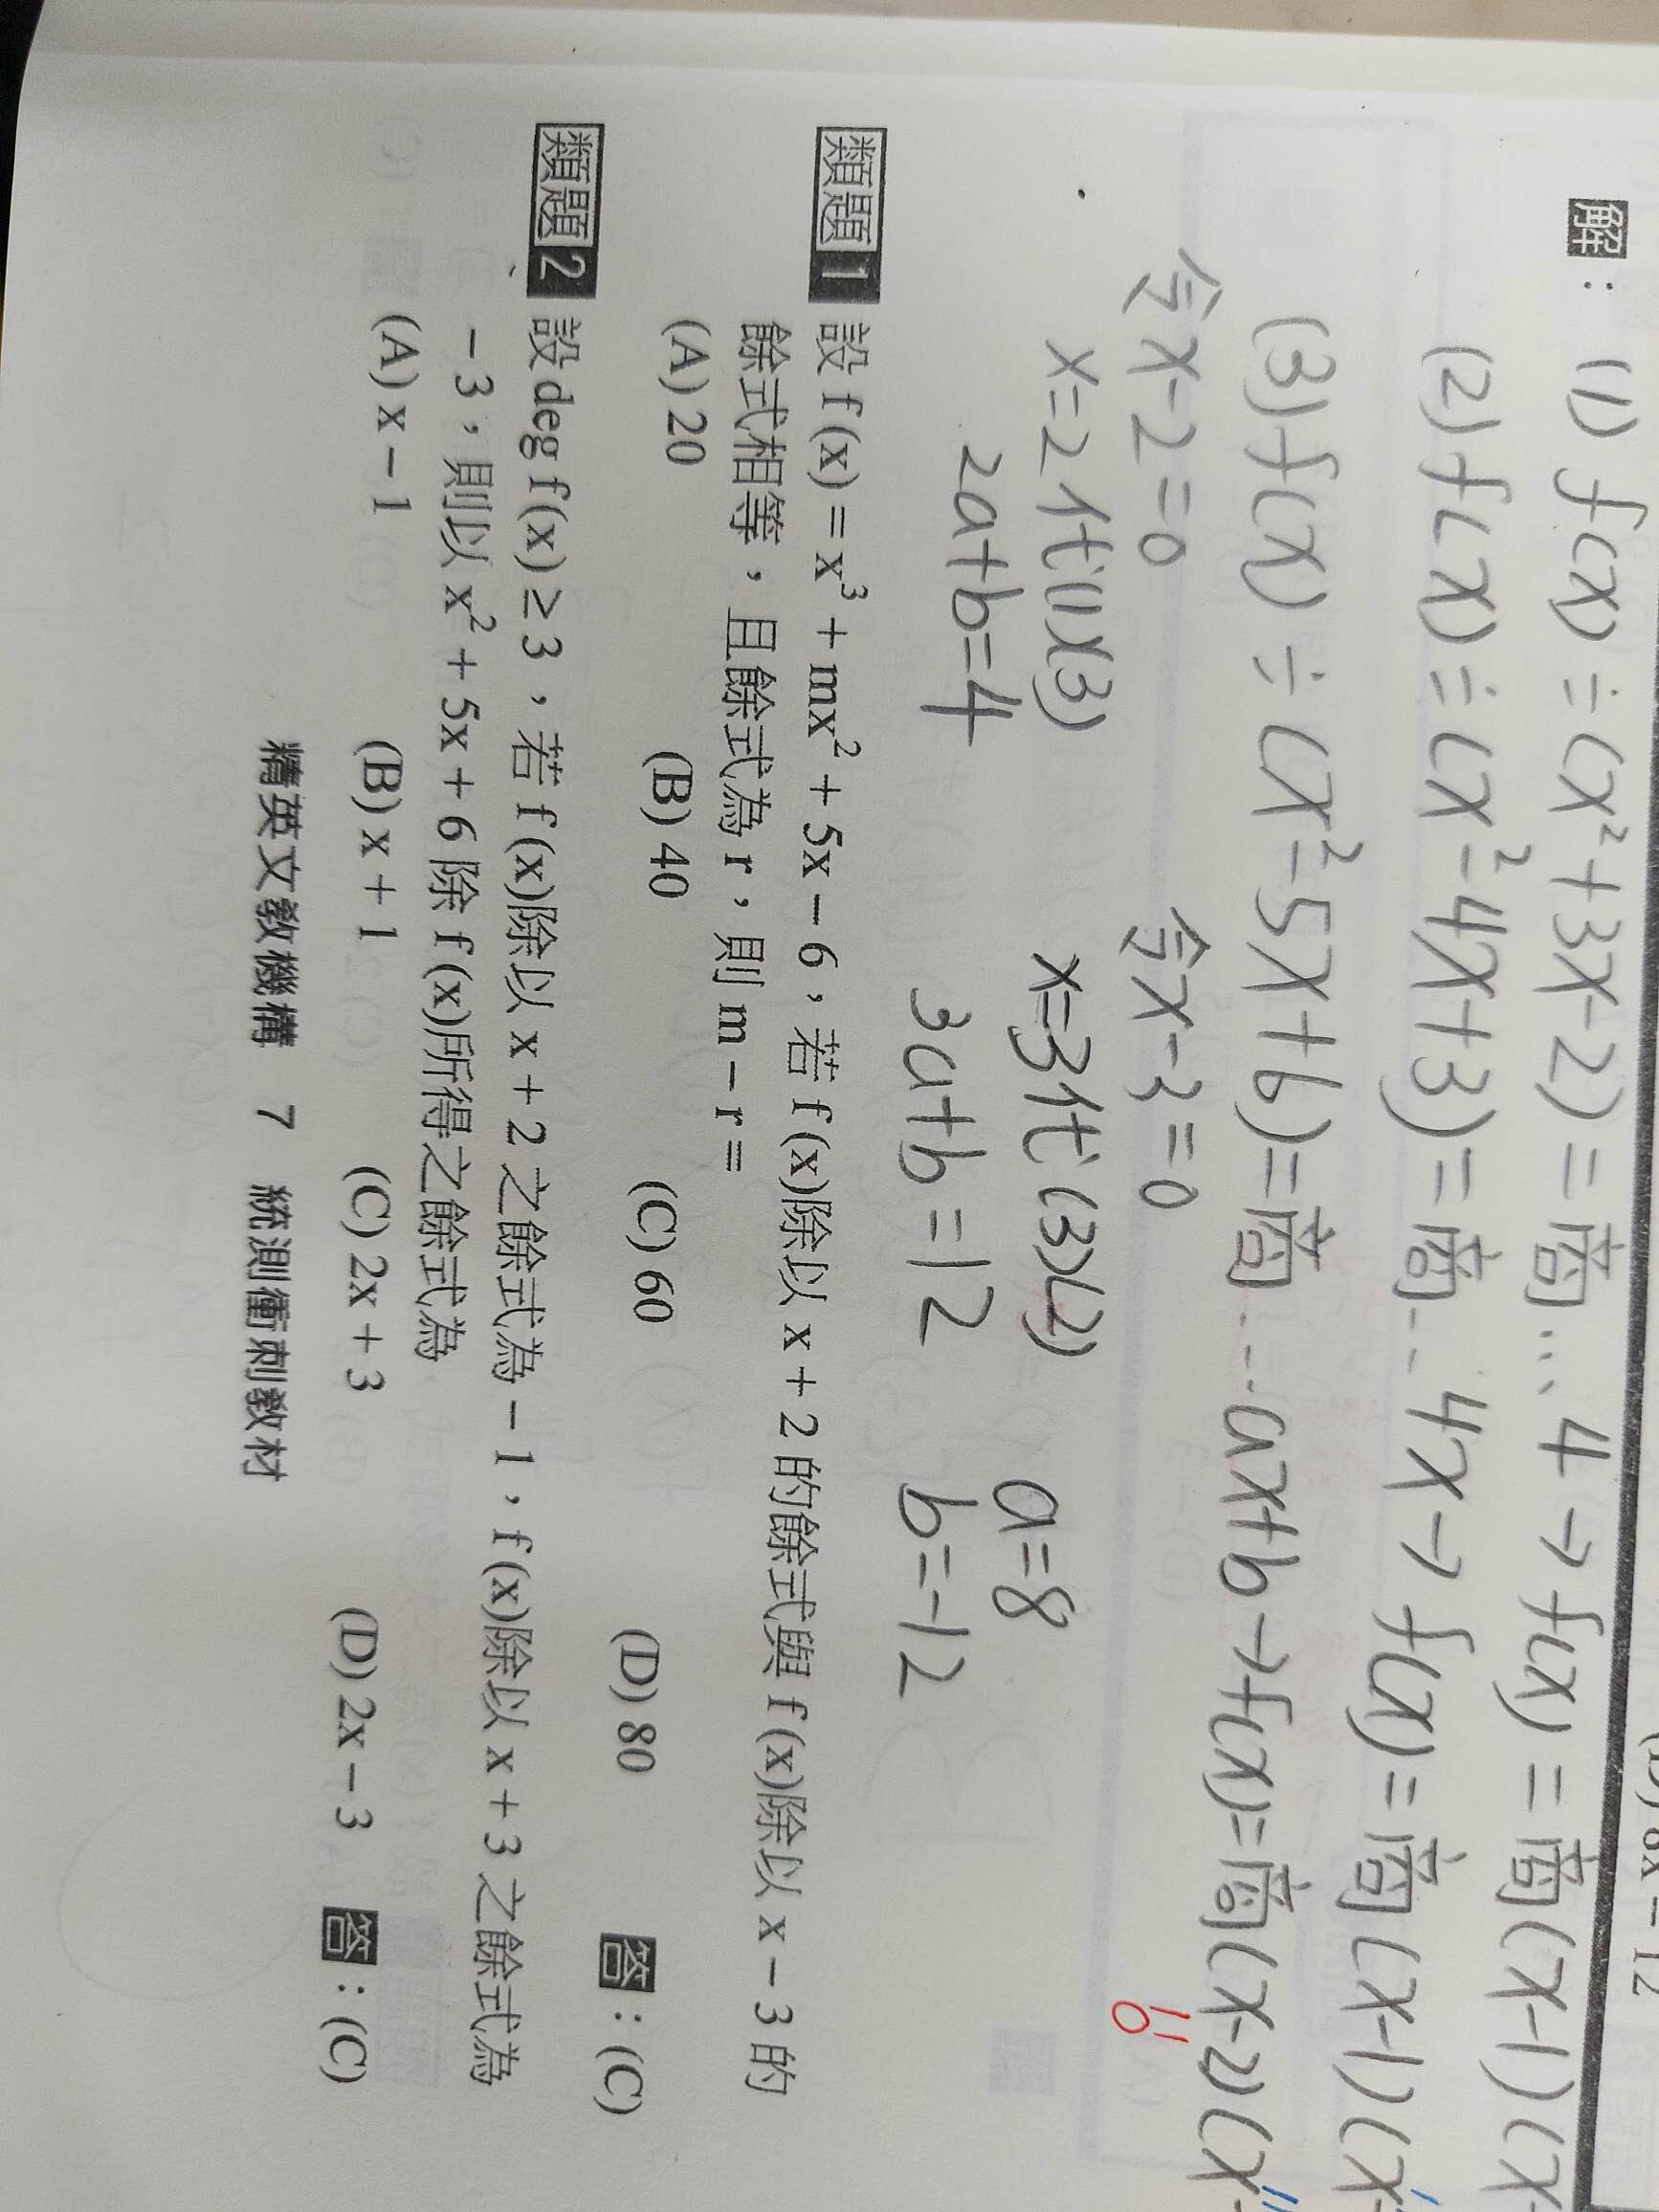 (D) 8x − 12
解：(1) f(x) ÷ (x²+3x-2) = 商 … 4 → f(x) = 商 (x-1)(x-
(2) f(x) ÷ (x²-4x+3) = 商 … 4x → f(x) = 商 (x-1)(x-
(3) f(x) ÷ (x²-5x+6) = 商 … ax+b → f(x) = 商 (x-2)(x-
0
令 x-2=0 令 x-3=0
x=2代(1)(3) x=3代(3)(2) a=8
2a+b=4 3a+b=12 b=-12
類題1 設 f (x) = x³ + mx² + 5x − 6，若 f (x)除以 x + 2 的餘式與 f (x)除以 x − 3 的
餘式相等，且餘式為 r，則 m − r =
(A) 20 (B) 40 (C) 60 (D) 80 答：(C)
類題2 設 deg f (x) ≥ 3，若 f (x)除以 x + 2 之餘式為 − 1，f (x)除以 x + 3 之餘式為
− 3，則以 x² + 5x + 6 除 f (x)所得之餘式為
(A) x − 1 (B) x + 1 (C) 2x + 3 (D) 2x − 3 答：(C)
精英文教機構 7 統測衝刺教材